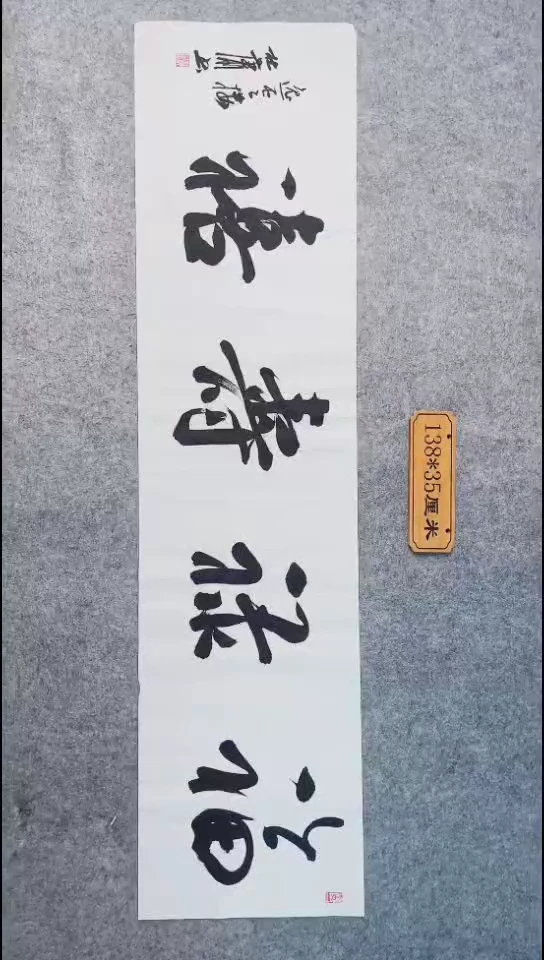 福禄寿禧
138*35厘米